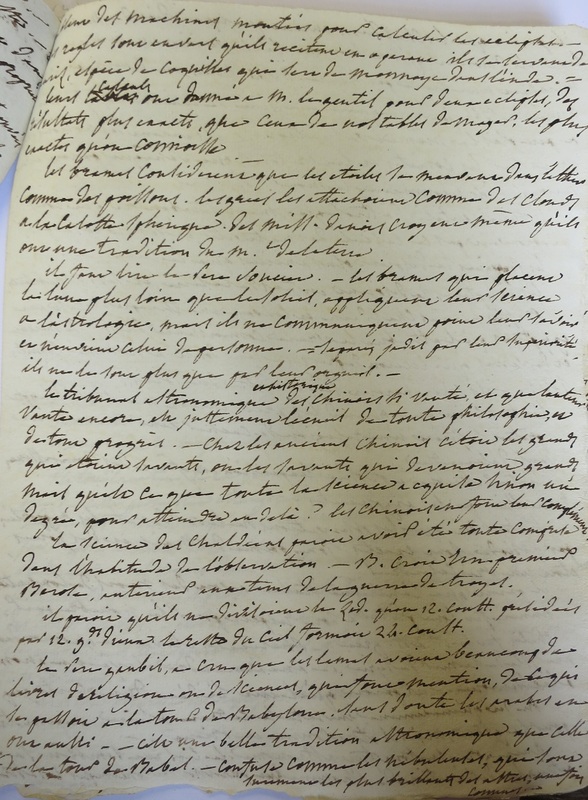 des machines montées pour calculer les eclipses —
regles sont en vers qu'ils recitent en operant ils se servent de
espèce de coquilles qui sert de monnaye dans l'inde. =
leurs calculs ont donné a M. le gentil pour deux eclipses, des
résultats plus exacts, que ceux de nos tables de mayer, les plus
exactes qu'on connoisse
les brames considerent que les etoiles se meuvent dans l'ether
comme des poissons. les grecs les attachoient comme des clouds
a la calotte spherique. des miss. danois croyent même qu'ils
ont une tradition du m. de la terre
il faut lire le Pere — les brames qui placent
la lune plus loin que le soleil, appliquent leur science
a l'astrologie, mais ils ne communiquent point leur savoir
et n'envient celui de personne. — separés jadis par leur superiorité
ils ne le sont plus que par leur orgueil. —
le tribunal astronomique et historique des chinois si vanté, et que l'auteur
vante encore, est justement l'écueil de toute philosophie, et
de tout progres. — chez les anciens chinois c'etoit les grands
qui etoient savants, ou les savants qui devenoient grands
mais qu'est ce que toute la science acquise sinon un
degré, pour atteindre au delà ? les chinois en font leur
la science des chaldéens paroit avoir été toute comprise
dans l'habitude de l'observation. — B. croit un premier
Berose, anterieur aux tems de la guerre de troyes.
il paroit qu'ils ne divisoient le Zod. qu'en 12. const. présidées
par 12. gds dieux le reste du ciel formoit 24. const.
le Pere gaubil, a cru que les avoient beaucoup de
livres de religion ou de sciences, qui font mention, de ce qui
se passoit a la tour de Babylone. sans doute les arabes en
ont aussi. — c'est une belle tradition astronomique que celle
de la tour de Babel. — confuse comme les nebuleuses, qui sont
surement les plus brillants des astres, une fois